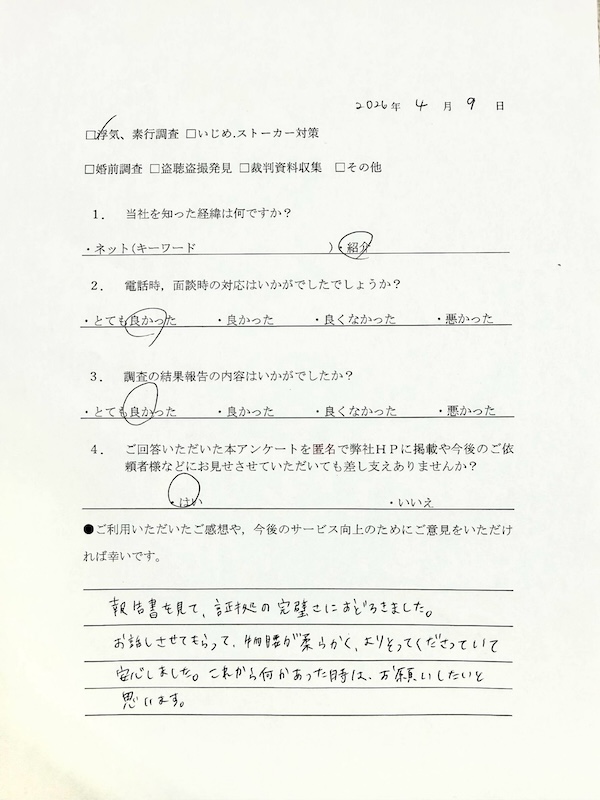 2026年 4月 9日
□浮気、素行調査 □いじめ.ストーカー対策
□婚前調査 □盗聴盗撮発見 □裁判資料収集 □その他
1． 当社を知った経緯は何ですか？
・ネット(キーワード )・紹介
2． 電話時，面談時の対応はいかがでしたでしょうか？
・とても良かった ・良かった ・良くなかった ・悪かった
3． 調査の結果報告の内容はいかがでしたか？
・とても良かった ・良かった ・良くなかった ・悪かった
4． ご回答いただいた本アンケートを匿名で弊社ＨＰに掲載や今後のご依
頼者様などにお見せさせていただいても差し支えありませんか？
・はい ・いいえ
●ご利用いただいたご感想や，今後のサービス向上のためにご意見をいただけ
れば幸いです。
報告書を見て、証拠の完璧さにおどろきました。
お話しさせてもらって、物腰が柔らかく、よりそってくださっていて
安心しました。これから何かあった時は、お願いしたいと
思います。